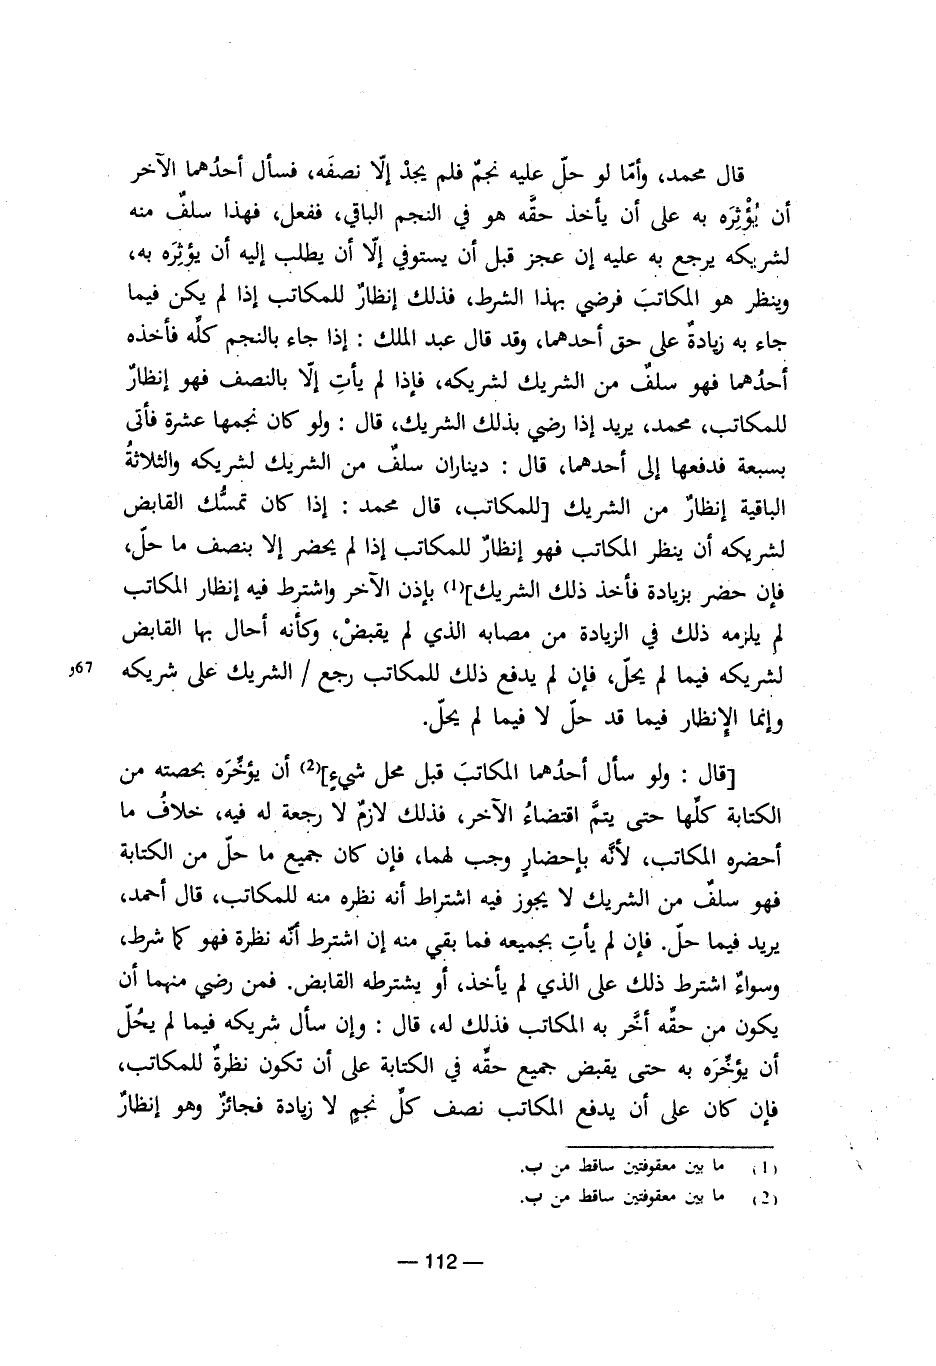 قال محمد، وأمّا لو حلّ عليه نجمٌ فلم يجدْ إلّا نصفَه، فسأل أحدُهما الآخر
أن يُؤْثِرَه به على أن يأخذ حقَّه هو في النجم الباقي، ففعل، فهذا سلفٌ منه
لشريكه يرجع به عليه إن عجز قبل أن يستوفي إلّا أن يطلب إليه أن يؤثِرَه به،
وينظر هو المكاتبَ فرضي بهذا الشرط، فذلك إنظارٌ للمكاتب إذا لم يكن فيما
جاء به زيادةٌ على حق أحدهما، وقد قال عبد الملك : إذا جاء بالنجم كلِّه فأخذه
أحدُهما فهو سلفٌ من الشريك لشريكه، فإذا لم يأتِ إلّا بالنصف فهو إنظارٌ
للمكاتب، محمد، يريد إذا رضي بذلك الشريك، قال : ولو كان نجمها عشرة فأتى
بسبعة فدفعها إلى أحدهما، قال : ديناران سلفٌ من الشريك لشريكه والثلاثةُ
الباقية إنظارٌ من الشريك [للمكاتب، قال محمد : إذا كان تمسُّك القابض
لشريكه أن ينظر المكاتب فهو إنظارٌ للمكاتب إذا لم يحضر إلا بنصف ما حلّ،
فإن حضر بزيادة فأخذ ذلك الشريك](1) بإذن الآخر واشترط فيه إنظار المكاتب
لم يلزمه ذلك في الزيادة من مصابه الذي لم يقبضْ، وكأنه أحال بها القابض
لشريكه فيما لم يحلّ، فإن لم يدفع ذلك للمكاتب رجع / الشريك على شريكه
67و
وإنما الإنظار فيما قد حلّ لا فيما لم يحلّ.
[قال : ولو سأل أحدُهما المكاتبَ قبل محل شيءٍ](2) أن يؤخَّرَه بحصته من
الكتابة كلِّها حتى يتمَّ اقتضاءُ الآخر، فذلك لازمٌ لا رجعة له فيه، خلافُ ما
أحضره المكاتب، لأنَّه بإحضارٍ وجب لهما، فإن كان جميع ما حلّ من الكتابة
فهو سلفٌ من الشريك لا يجوز فيه اشتراط أنه نظره منه للمكاتب، قال أحمد،
يريد فيما حلّ. فإن لم يأتِ بجميعه فما بقي منه إن اشترط أنّه نظرة فهو كما شرط،
وسواءٌ اشترط ذلك على الذي لم يأخذ، أو يشترطه القابض. فمن رضي منهما أن
يكون من حقِّه أخَّر به المكاتب فذلك له، قال : وإن سأل شريكه فيما لم يحُلّ
أن يؤخِّرَه به حتى يقبض جميع حقِّه في الكتابة على أن تكون نظرةٌ للمكاتب،
فإن كان على أن يدفع المكاتب نصف كلِّ نجمٍ لا زيادة فجائزٌ وهو إنظارٌ
(1) ما بين معقوفتين ساقط من ب.
(2) ما بين معقوفتين ساقط من ب.
— 112 —